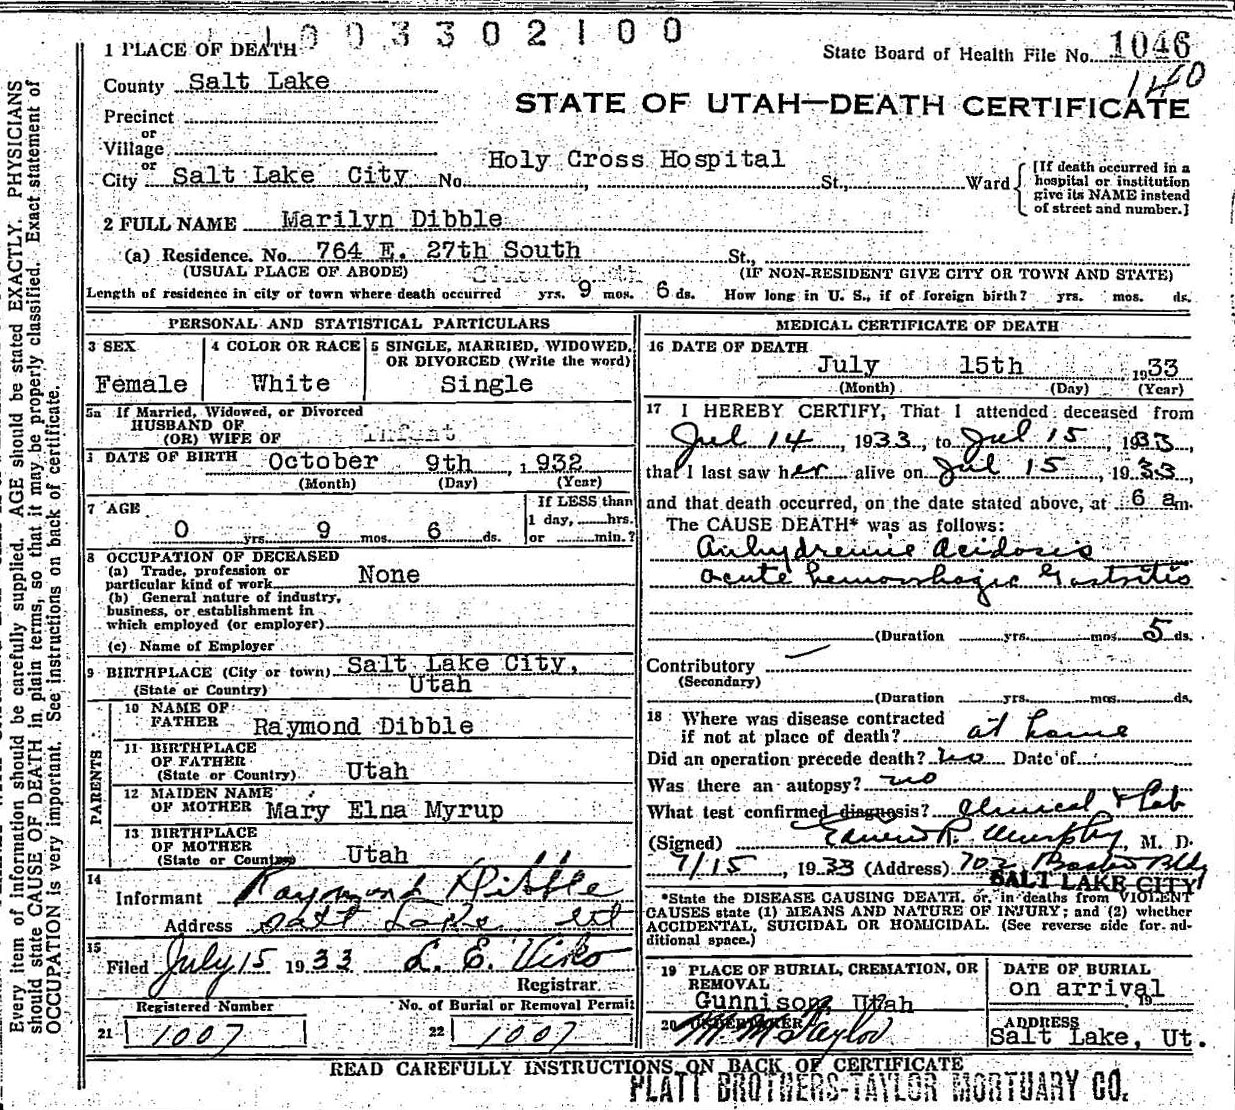 1003302100
1 PLACE OF DEATH
State Board of Health File No. 1046
140
County Salt Lake
STATE OF UTAH—DEATH CERTIFICATE
Precinct
or
Village
or
City Salt Lake City No. Holy Cross Hospital St., Ward
[If death occurred in a
hospital or institution
give its NAME instead
of street and number.]
2 FULL NAME Marilyn Dibble
(a) Residence. No. 764 E. 27th South St.,
(USUAL PLACE OF ABODE) (IF NON-RESIDENT GIVE CITY OR TOWN AND STATE)
Length of residence in city or town where death occurred yrs. 9 mos. 6 ds. How long in U. S., if of foreign birth? yrs. mos. ds.
PERSONAL AND STATISTICAL PARTICULARS
3 SEX
Female
4 COLOR OR RACE
White
5 SINGLE, MARRIED, WIDOWED,
OR DIVORCED (Write the word)
Single
5a If Married, Widowed, or Divorced
HUSBAND OF
(OR) WIFE OF Infant
DATE OF BIRTH October 9th, 1932
(Month) (Day) (Year)
7 AGE
0 yrs. 9 mos. 6 ds.
If LESS than
1 day, hrs.
or min.?
8 OCCUPATION OF DECEASED
(a) Trade, profession or
particular kind of work None
(b) General nature of industry,
business, or establishment in
which employed (or employer)
(c) Name of Employer
9 BIRTHPLACE (City or town) Salt Lake City,
(State or Country) Utah
PARENTS
10 NAME OF
FATHER Raymond Dibble
11 BIRTHPLACE
OF FATHER
(State or Country) Utah
12 MAIDEN NAME
OF MOTHER Mary Elna Myrup
13 BIRTHPLACE
OF MOTHER
(State or Country) Utah
14
Informant Raymond Dibble
Address Salt Lake Ut
15
Filed July 15 1933 L. E. Viko
Registrar.
Registered Number
21 1007
No. of Burial or Removal Permit
22 1007
MEDICAL CERTIFICATE OF DEATH
16 DATE OF DEATH
July 15th 1933
(Month) (Day) (Year)
17 I HEREBY CERTIFY, That I attended deceased from
Jul 14, 1933, to Jul 15, 1933
that I last saw her alive on Jul 15, 1933,
and that death occurred, on the date stated above, at 6 am.
The CAUSE DEATH* was as follows:
Anhydremic Acidosis
acute hemorrhagic Gastritis
(Duration yrs. mos. 5 ds.
Contributory
(Secondary)
(Duration yrs. mos. ds.
18 Where was disease contracted
if not at place of death? at home
Did an operation precede death? no Date of
Was there an autopsy? no
What test confirmed diagnosis? Clinical & Lab
(Signed) Edwin R. Murphy, M. D.
7/15, 1933 (Address) 702 Boston Bldg
SALT LAKE CITY
*State the DISEASE CAUSING DEATH, or, in deaths from VIOLENT
CAUSES state (1) MEANS AND NATURE OF INJURY; and (2) whether
ACCIDENTAL, SUICIDAL OR HOMICIDAL. (See reverse side for ad-
ditional space.)
19 PLACE OF BURIAL, CREMATION, OR
REMOVAL
Gunnison, Utah
DATE OF BURIAL
on arrival
19
20 UNDERTAKER
M Taylor
ADDRESS
Salt Lake, Ut.
READ CAREFULLY INSTRUCTIONS ON BACK OF CERTIFICATE
PLATT BROTHERS-TAYLOR MORTUARY CO.
Every item of information should be carefully supplied. AGE should be stated EXACTLY. PHYSICIANS
should state CAUSE OF DEATH in plain terms, so that it may be properly classified. Exact statement of
OCCUPATION is very important. See instructions on back of certificate.